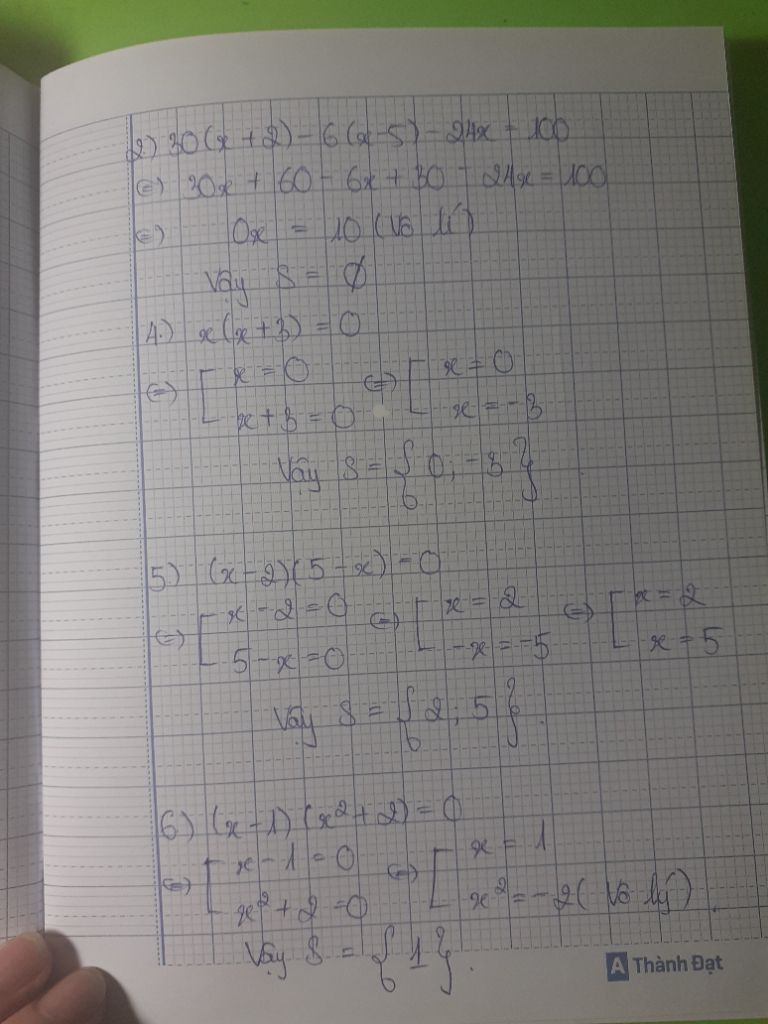 2) 30(x + 2) - 6(x-5) - 24x = 100
⇔ 30x + 60 - 6x + 30 - 24x = 100
⇔ 0x = 10 (Vô lí)
Vậy S = ∅
4.) x(x+3) = 0
⇔ [ x = 0 ⇔ [ x = 0
x+3 = 0 x = -3
Vậy S = { 0; -3 }
5) (x-2)(5-x) = 0
⇔ [ x - 2 = 0 ⇔ [ x = 2 ⇔ [ x = 2
5 - x = 0 -x = -5 x = 5
Vậy S = { 2; 5 }.
6) (x-1)(x²+2) = 0
⇔ [ x - 1 = 0 ⇔ [ x = 1
x² + 2 = 0 x² = -2 (Vô lý).
Vậy S = { 1 }.
A Thành Đạt